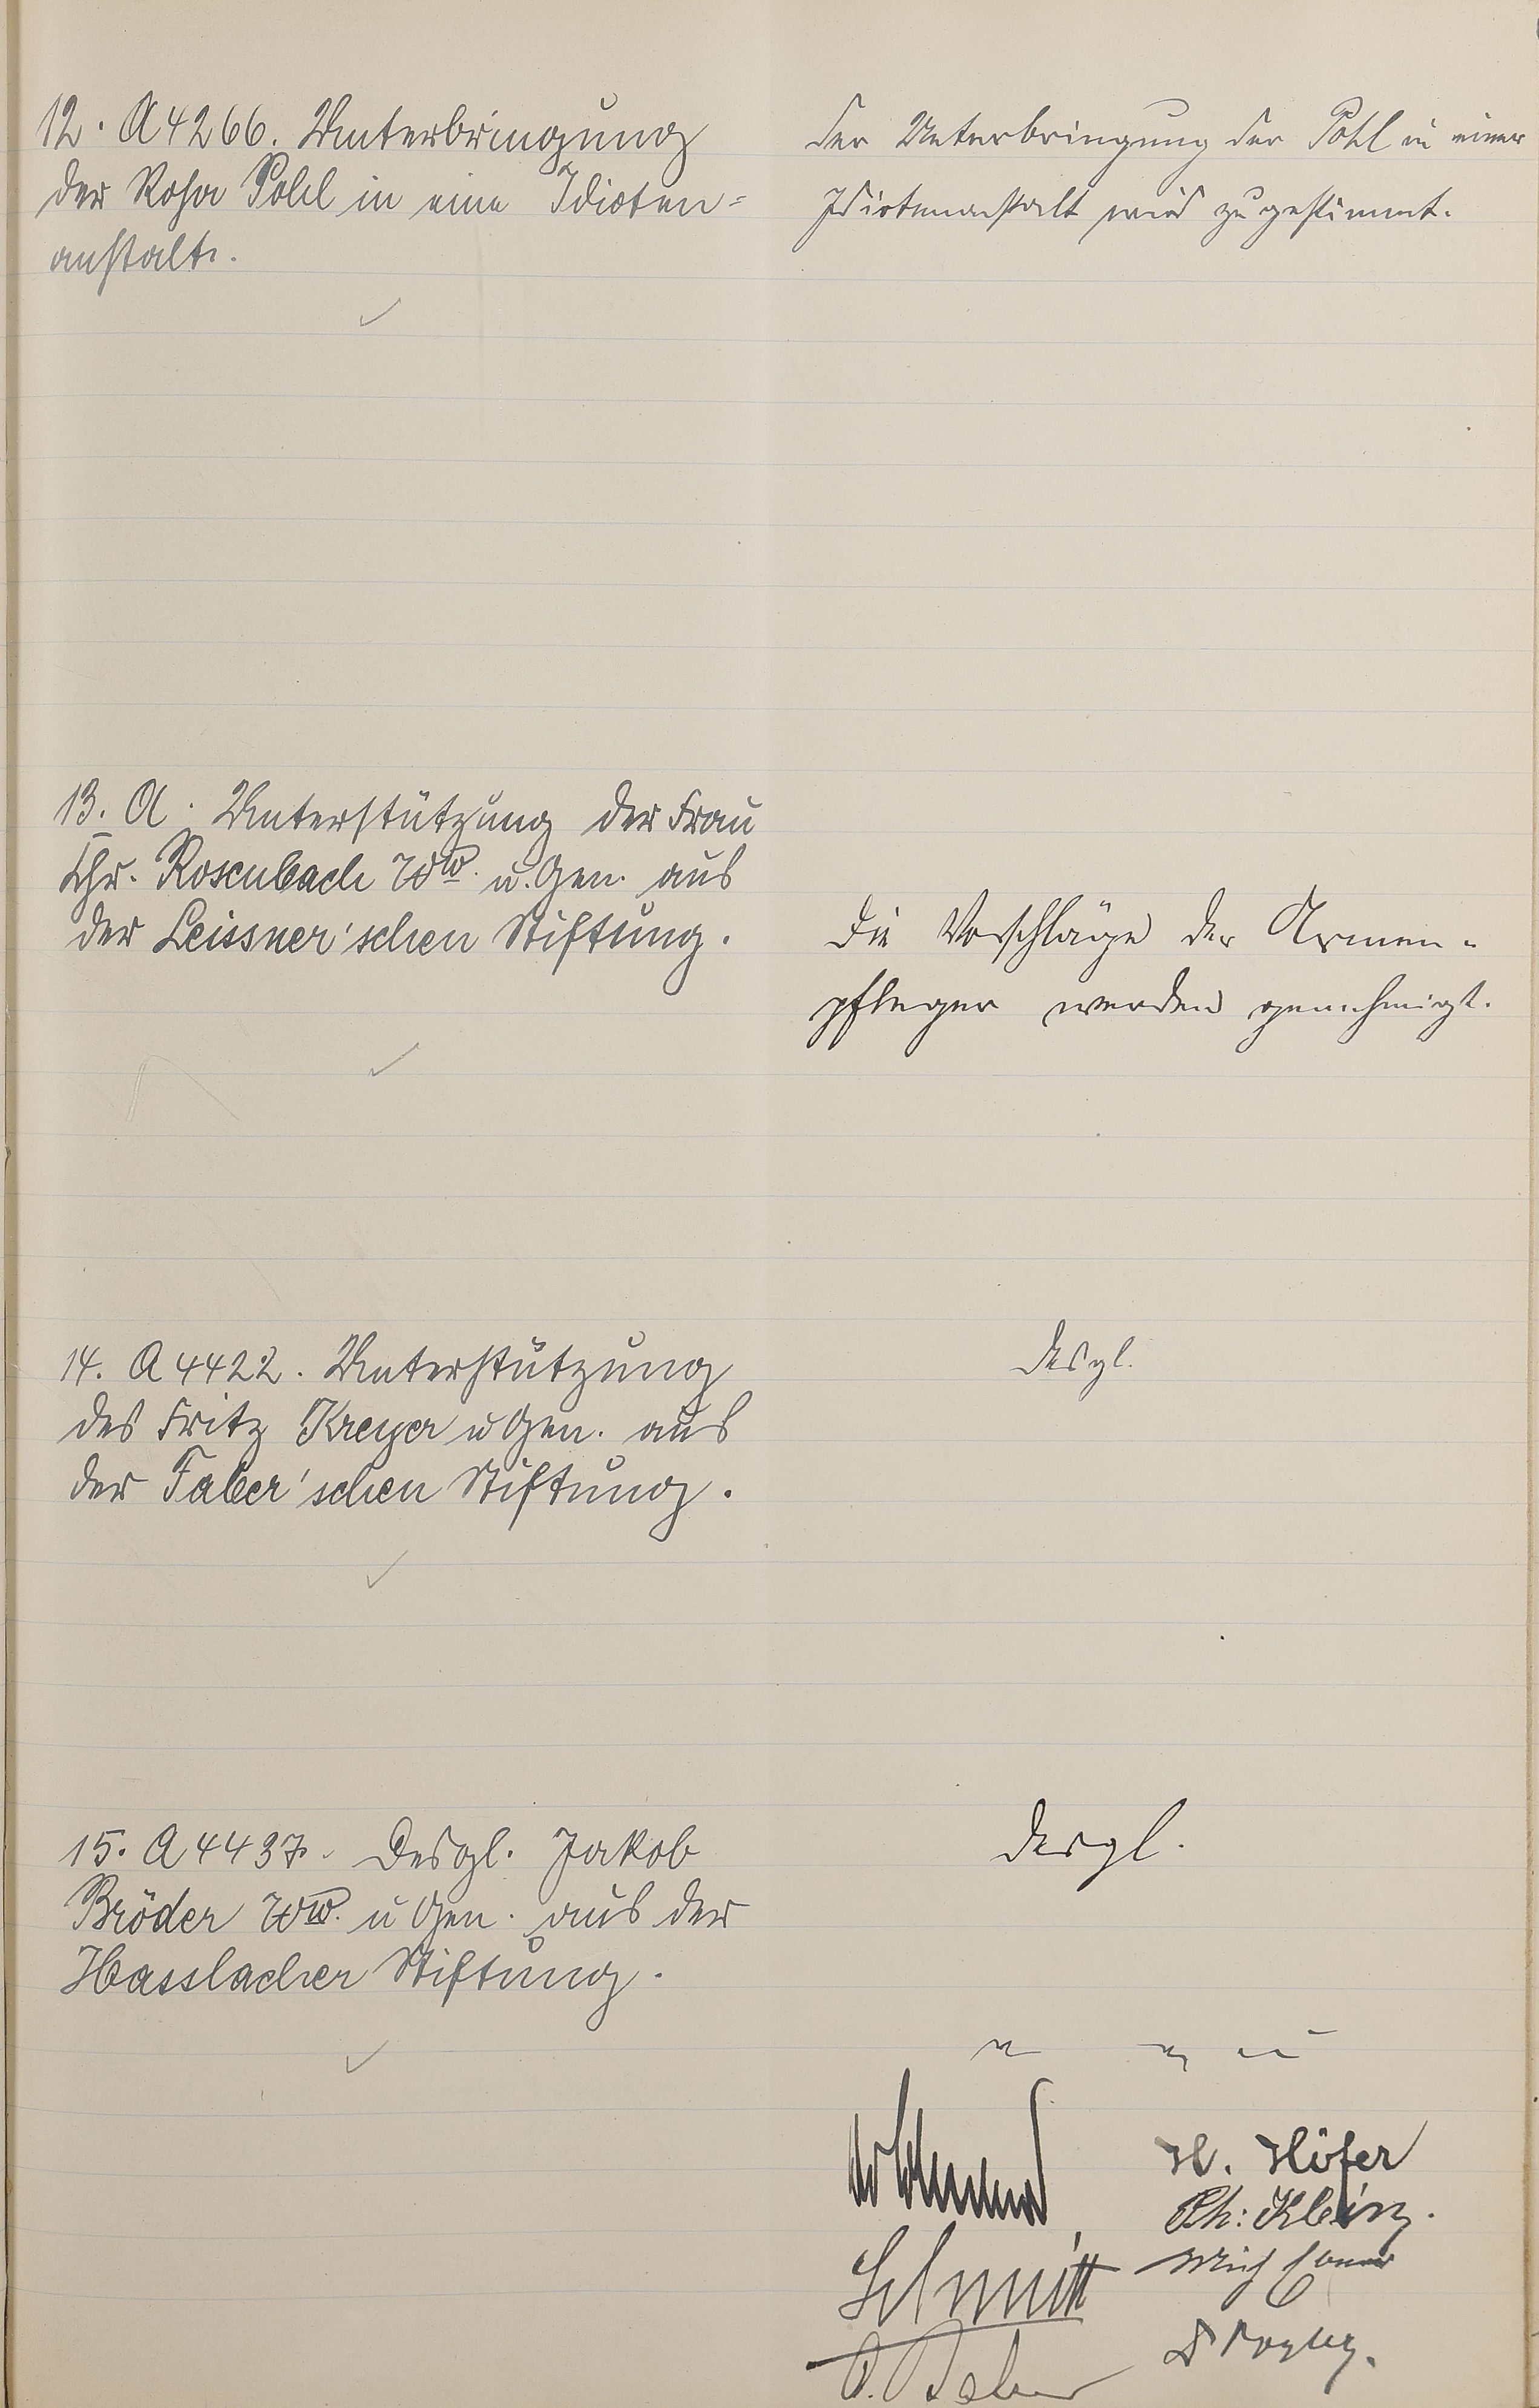 12. A 4266. Unterbringung
der Rosa Pohl in eine Idioten=
anstalt.
Der Unterbringung der Pohl in einer
Idiotenanstalt wird zugestimmt.
13. A. Unterstützung der Frau
Chr. Rosenbach Ww. u. Gen. aus
der Leissner'schen Stiftung.
Die Vorschläge der Armen-
pfleger werden genehmigt.
14. A 4422. Unterstützung
des Fritz Kreyer u Gen. aus
der Faber'schen Stiftung.
Desgl.
15. A 4437. Desgl. Jakob
Bröder Ww. u Gen. aus der
Hasslacher Stiftung.
Desgl.
H. Höfer
Ph: Kleinz.
Schmitt